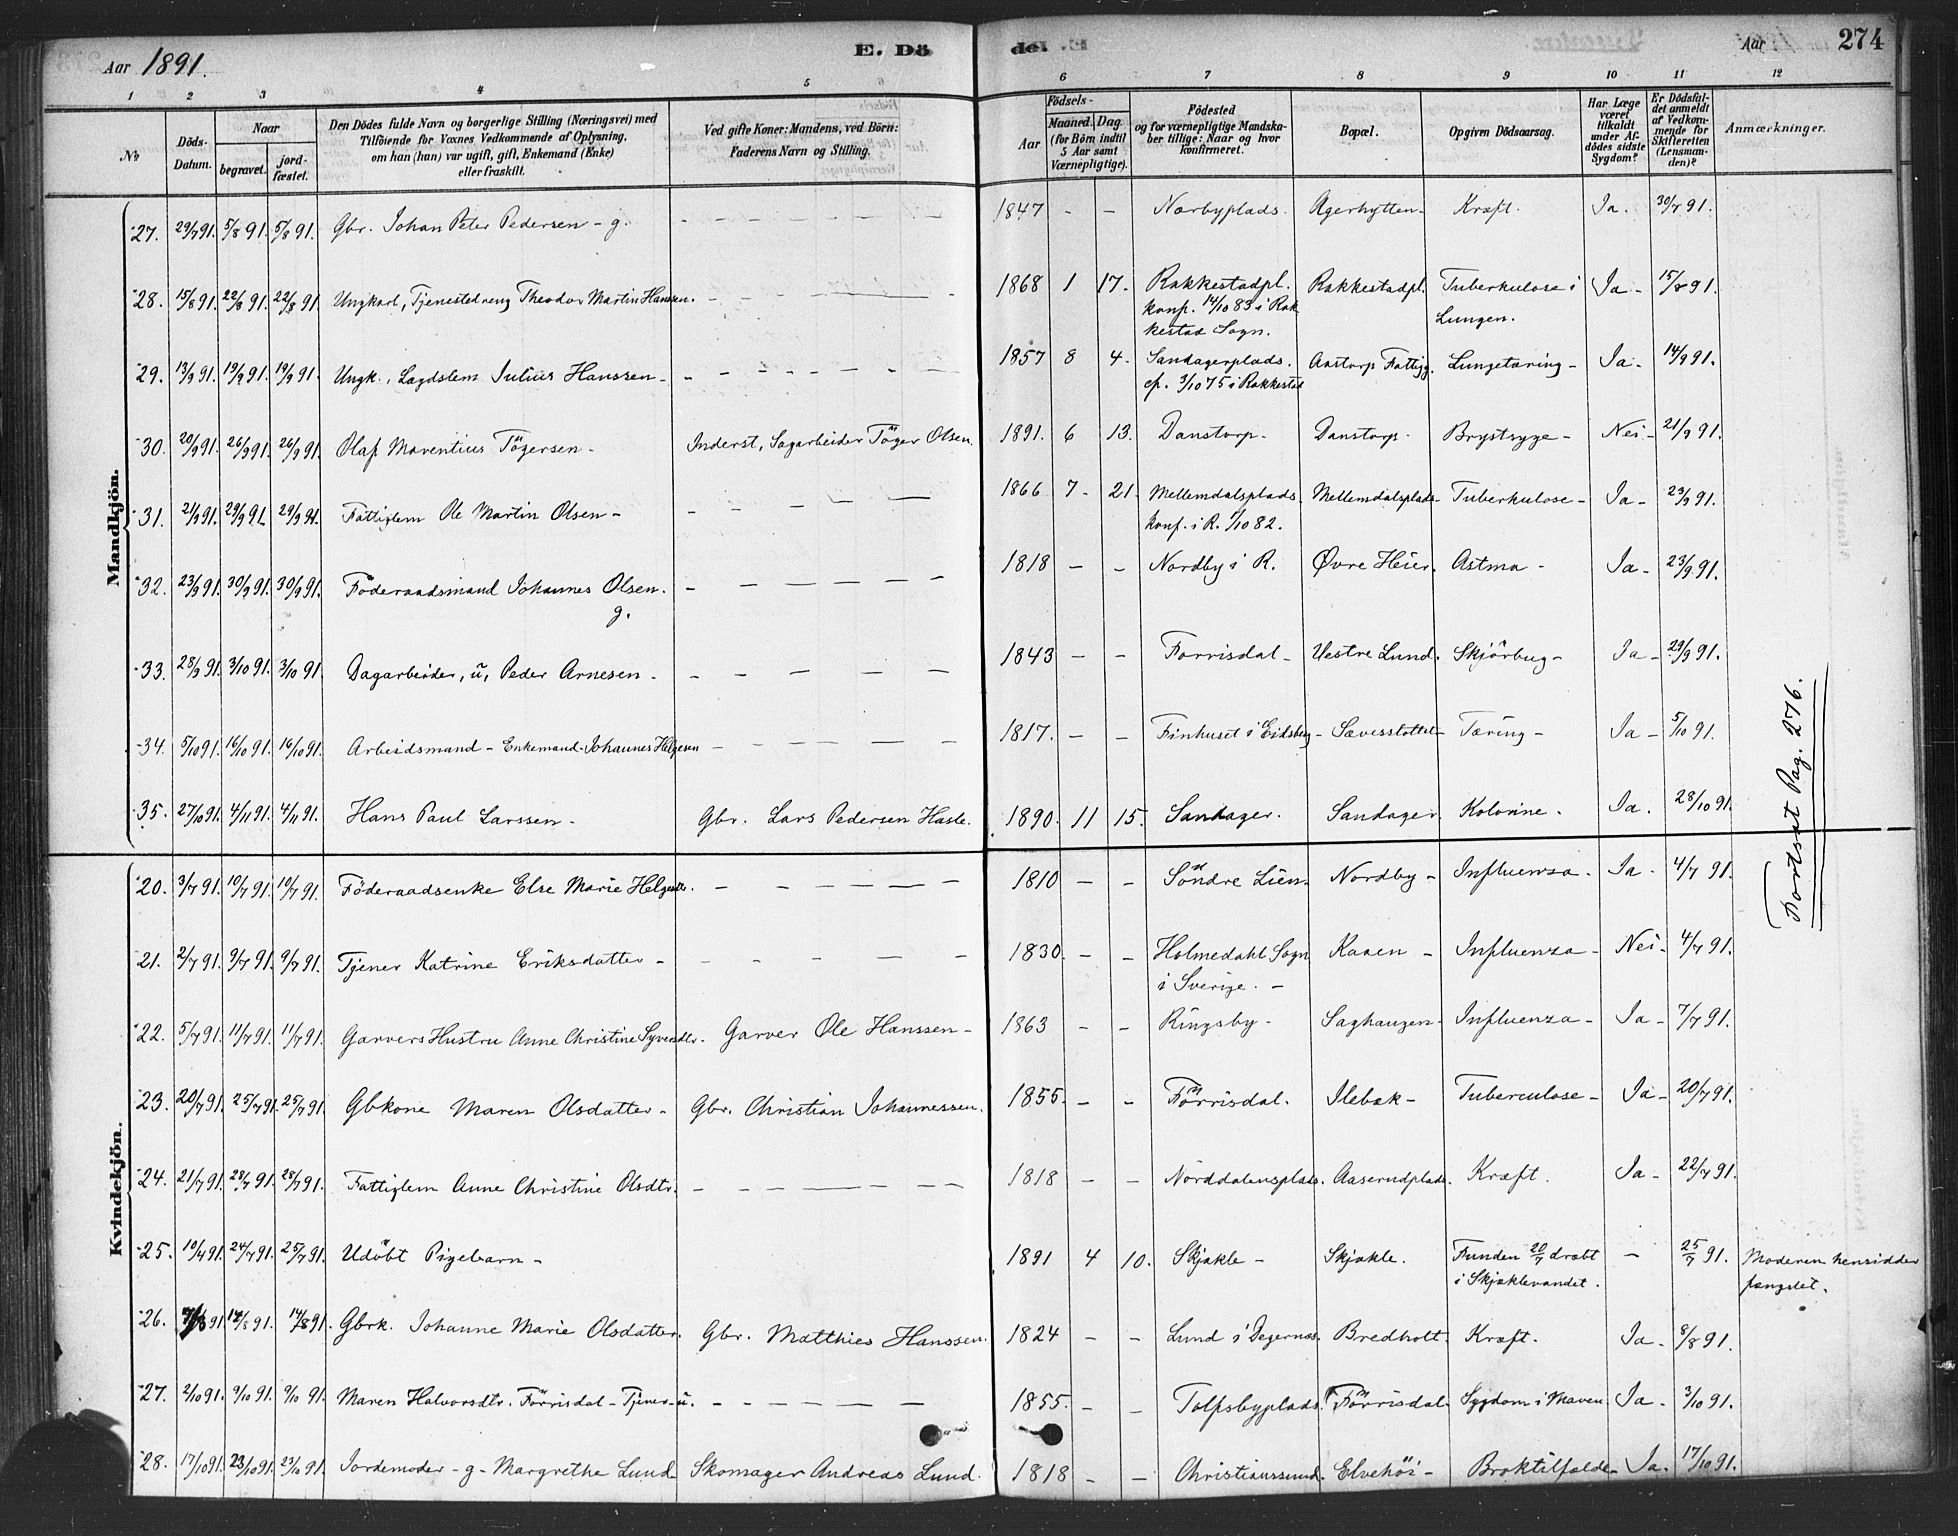 Aar 1891. E. Dö de. Aar 274
1 2 3 4 5 6 7 8 9 10 11 12
No
Döds-Datum.
Naar begravet. jordfæstet.
Den Dödes fulde Navn og borgerlige Stilling (Næringsvei) med Tilföiende for Voxnes Vedkommende af Oplysning, om han (hun) var ugift, gift, Enkemand (Enke) eller fraskilt.
Ved gifte Koner: Mandens, ved Börn: Faderens Navn og Stilling.
Födsels- Aar Maaned. Dag (for Börn indtil 5 Aar samt Værnepligtige).
Födested og for værnepligtige Mandskaber tillige: Naar og hvor konfirmeret.
Bopæl.
Opgiven Dödsaarsag.
Har Læge været tilkaldt under Afdödes sidste Sygdom?
Er Dödsfaldet anmeldt af Vedkommende for Skifteretten (Lensmanden)?
Anmærkninger.
Mandkjön.
27. 29/7 91. 5/8 91. 5/8 91. Gbr. Johan Peter Pedersen - g. 1847 - - Nærbyplads. Agerhytten- Kræft. Ja. 30/7 91.
28. 15/8 91. 22/8 91. 22/8 91. Ungkarl, Tjenestedreng Theodor Martin Hanssen. 1868 1 17. Rakkestadpl. Rakkestadpl. Tuberkulose i Ja - 15/8 91.
konf. 14/10 83 i Rak Lungen.
kestad Sogn.
29. 13/9 91. 19/9 91. 19/9 91. Ungk., Lægdslem Julius Hanssen - 1857 8 4. Sandagerplads. Aastorp Fattigg. Lungetæring - Ja - 14/9 91.
cf. 3/10 75 i Rakkestad
30. 20/9 91. 26/9 91. 26/9 91. Olaf Maventius Tögersen - Inderst, Sagarbeider Töger Olsen. 1891. 6 13. Danstorp. Danstorp. Brystsyge - Nei - 21/9 91.
31. 21/9 91. 29/9 91. 29/9 91. Fattiglem Ole Martin Olsen - 1866 7 - 21. Mellemdalsplads. Mellemdalsplads. Tuberkulose - Ja - 23/9 91.
konf. i R. 1/10 82.
32. 23/9 91. 30/9 91. 30/9 91. Föderaadsmand Johannes Olsen. 1818 - - Nordby i R. Øvre Heier. Astma - Ja - 23/9 91.
g.
33. 28/9 91. 3/10 91. 3/10 91. Dagarbeider, u, Peder Arnesen - 1843 - - Forrisdal - Vestre Lund. Skjörbug - Ja - 29/9 91.
34. 5/10 91. 16/10 91. 16/10 91. Arbeidsmand - Enkemand. Johannes Helgesen 1817. - - Finhuset i Eidsberg - Sævesslottet - Tæring - Ja - 5/10 91.
35. 27/10 91. 4/11 91. 4/11 91. Hans Paul Larssen - Gbr. Lars Pedersen Hasle. 1890. 11 15. Sandager. Sandager. Kolorine. Ja. 28/10 91.
(Fortsat Pag. 276.
Kvindekjön.
20. 3/7 91. 10/7 91. 10/7 91. Föderaadsenke Else Marie Helgesdtr. 1810 - - Söndre Lien. Nordby - Influenza. Ja - 4/7 91.
21. 2/7 91. 9/7 91. 9/7 91. Tjener Katrine Eriksdatter - 1830. - - Holmedahl Sogn Kaaen - Influenza - Nei - 4/7 91.
i Sverige. -
22. 5/7 91. 11/7 91. 11/7 91. Garvers Hustru Anne Christine Syversdtr. Garver Ole Hanssen - 1863 - - Ringsby - Saghaugen - Influenza - Ja - 7/7 91.
23. 20/7 91. 25/7 91. 25/7 91. Gbkone Maren Olsdatter - Gbr. Christian Johannessen. 1855. - - Förrisdal. Ilebæk - Tuberculose - Ja - 20/7 91.
24. 21/7 91. 28/7 91. 28/7 91. Fattiglem Anne Christine Olsdtr. 1818 - - Nörddalensplads. Aaserudplads. Kræft. Ja - 22/7 91.
25. 19/4 91. 24/7 91. 25/7 91. Udöbt Pigebarn - 1891 4 10. Skjækle - Skjækle. Funden 20/7 dræbt - 25/7 91. Moderen hensidder
i Skjæklevandet. fængslet.
26. 7/8 91 14/8 91. 14/8 91. Gbrk. Johanne Marie Olsdatter. Gbr. Matthies Hanssen. 1824 - - Lund i Degernæs. Bredholt. Kræft. Ja - 8/8 91.
27. 2/10 91. 9/10 91. 9/10 91. Maren Halvorsdtr. Förrisdal - Tjener - u. 1855. - - Tolfsbyplads. Förrisdal. Sygdom i Maven. Ja - 3/10 91.
28. 17/10 91. 23/10 91. 23/10 91. Jordemoder - g - Margrethe Lund - Skomager Andreas Lund. 1818 - - Christianssund - Elvehöi - Broktilfælde - Ja. 17/10 91.